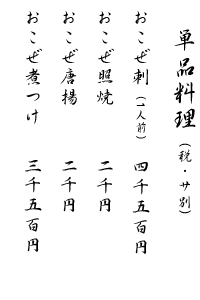 単品料理(税・サ別)
おこぜ刺(一人前) 四千五百円
おこぜ照焼 二千円
おこぜ唐揚 二千円
おこぜ煮つけ 三千五百円